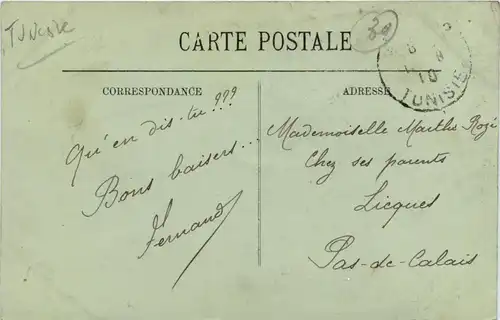 Tunisie
20
CARTE POSTALE
10
TUNISIE
CORRESPONDANCE
ADRESSE
Qu'en dis-tu???
Bons baisers...
Fernand
Mademoiselle Marthe Rozé
Chez ses parents
Licques
Pas-de-Calais